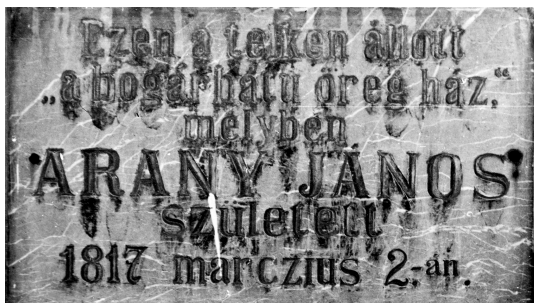 Ezen a telken állott
„a bogárhátu öreg ház,"
melyben
ARANY JÁNOS
született
1817 marczius 2.-án.